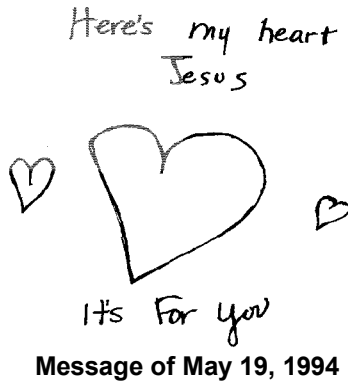 Here's my heart
Jesus
It's For you
Message of May 19, 1994